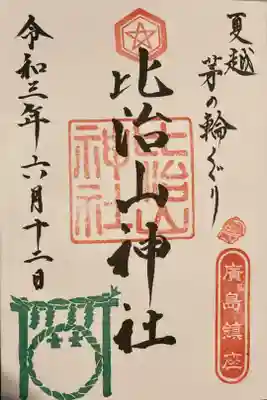 夏越
茅の輪くぐり
廣島鎮座
比治山神社
比治山
神社
令和三年六月十二日